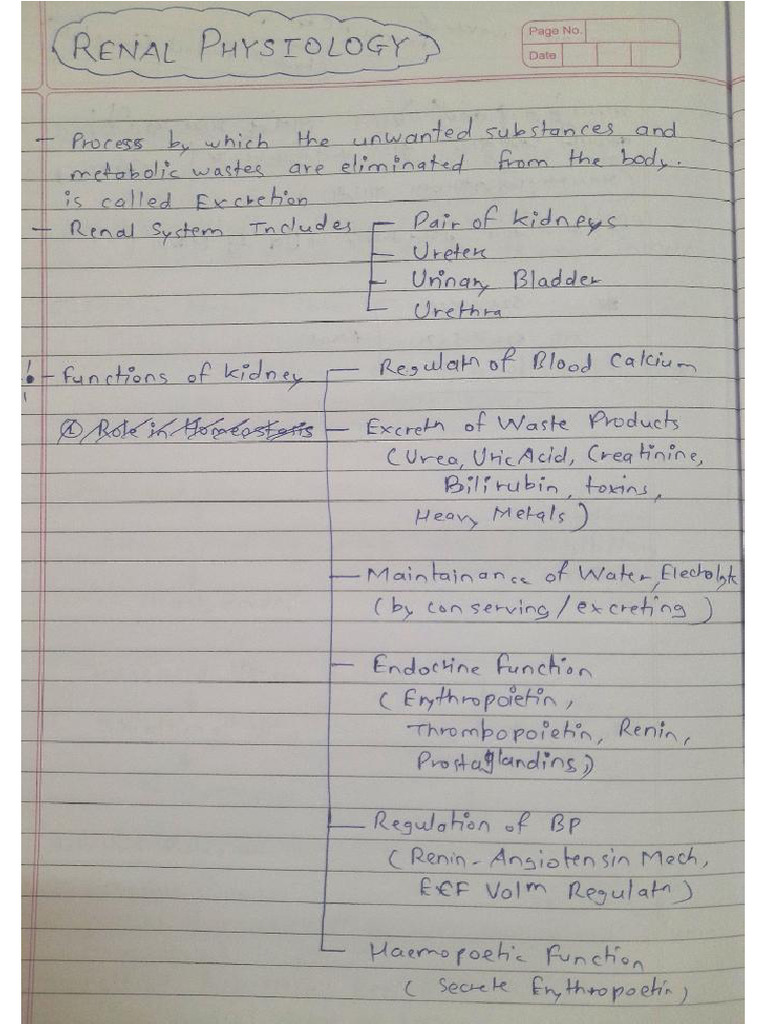 RENAL PHYSIOLOGY
Page No.
Date
- Process by which the unwanted substances and
metabolic wastes are eliminated from the body.
is called Excretion
- Renal System Includes - Pair of kidneys
- Ureter
- Urinary Bladder
- Urethra
- functions of kidney - Regulatn of Blood Calcium
① Role in Homeostasis - Excretn of Waste Products
(Urea, Uric Acid, Creatinine,
Bilirubin, toxins,
Heavy Metals)
- Maintainance of Water, Electrolyte
(by conserving / excreting)
- Endocrine function
(Erythropoietin,
Thrombopoietin, Renin,
Prostaglandins,)
- Regulation of BP
(Renin - Angiotensin Mech,
ECF Volm Regulatn)
- Haemopoetic function
(Secrete Erythropoetin)